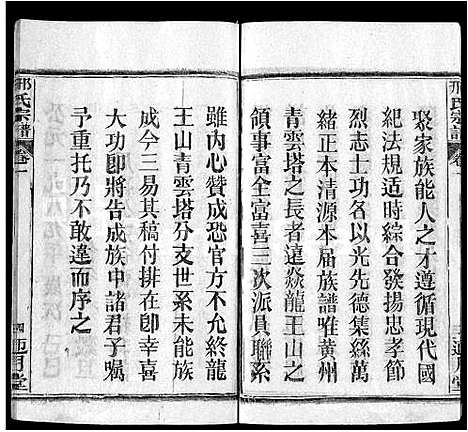 邢氏宗譜
卷一
聚家族能人之才遵循現代國
紀法規適時綜合發揚忠孝節
烈志士功名以光先德集絲萬
緒正本清源本届族譜惟黃州
青雲塔之長者遠焱龍王山之
領事富全富喜三次派員聯系
雖内心贊成恐官方不允許龍
王山青雲塔分支世系未能族
成今三易其稿付排在卽幸喜
大功卽將告成族中諸君子嘱
予重托乃不敢違而序之
邢氏宗譜
卷一
四